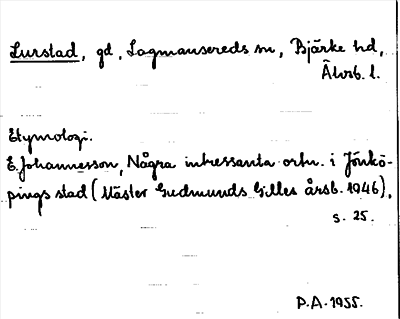 Lurstad, gd, Lagmansereds sn, Bjärke hd,
Älvsb. l.
Etymologi.
E. Johannesson, Några intressanta ortn. i Jönkö-
pings stad (Mäster Gudmunds Gilles årsb. 1946),
s. 25.
P.A. 1955.